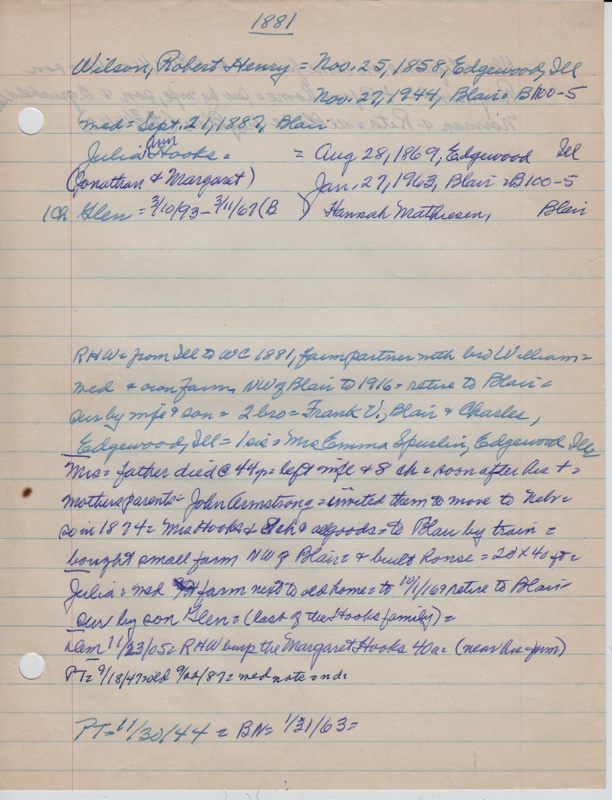 1881
Wilson, Robert Henry = Nov. 25, 1858, Edgewood, Ill
Nov. 27, 1944, Blair = B100-5
med = Sept. 21, 1887, Blair
Julia Ann Hooks = = Aug 28, 1869, Edgewood Ill
(Jonathan & Margaret) Jan. 27, 1963, Blair = B100-5
1Ch Glen = 3/10/93 - 3/11/67 (B ) Hannah Mathiesen, Blair
RHW = from Ill to WC 1881, farm partner with bro William =
med & own farm NW of Blair to 1916 = retire to Blair =
sur by wife & son = 2 bro = Frank V., Blair & Charles,
Edgewood, Ill = 1 sis = Mrs Emma Spurlin, Edgewood Ill
Mrs = father died @ 44 = left wife & 8 ch = soon after his + =
Mothers parents = John Armstrong = invited them to move to Nebr =
so in 1874 = Mrs Hooks & 8ch & goods = to Blair by train =
bought small farm NW of Blair = & built house = 20 x 40 ft =
Julia = med farm next to old home = to 10/1/169 retire to Blair
sur by son Glen = (last of the Hooks family) =
Dem 11/23/05 = RHW the Margaret Hooks 40a = (near his farm)
PT = 9/18/47 = old 9/22/87 = med note = nd =
PT = 11/30/44 = BN = 1/31/63 =